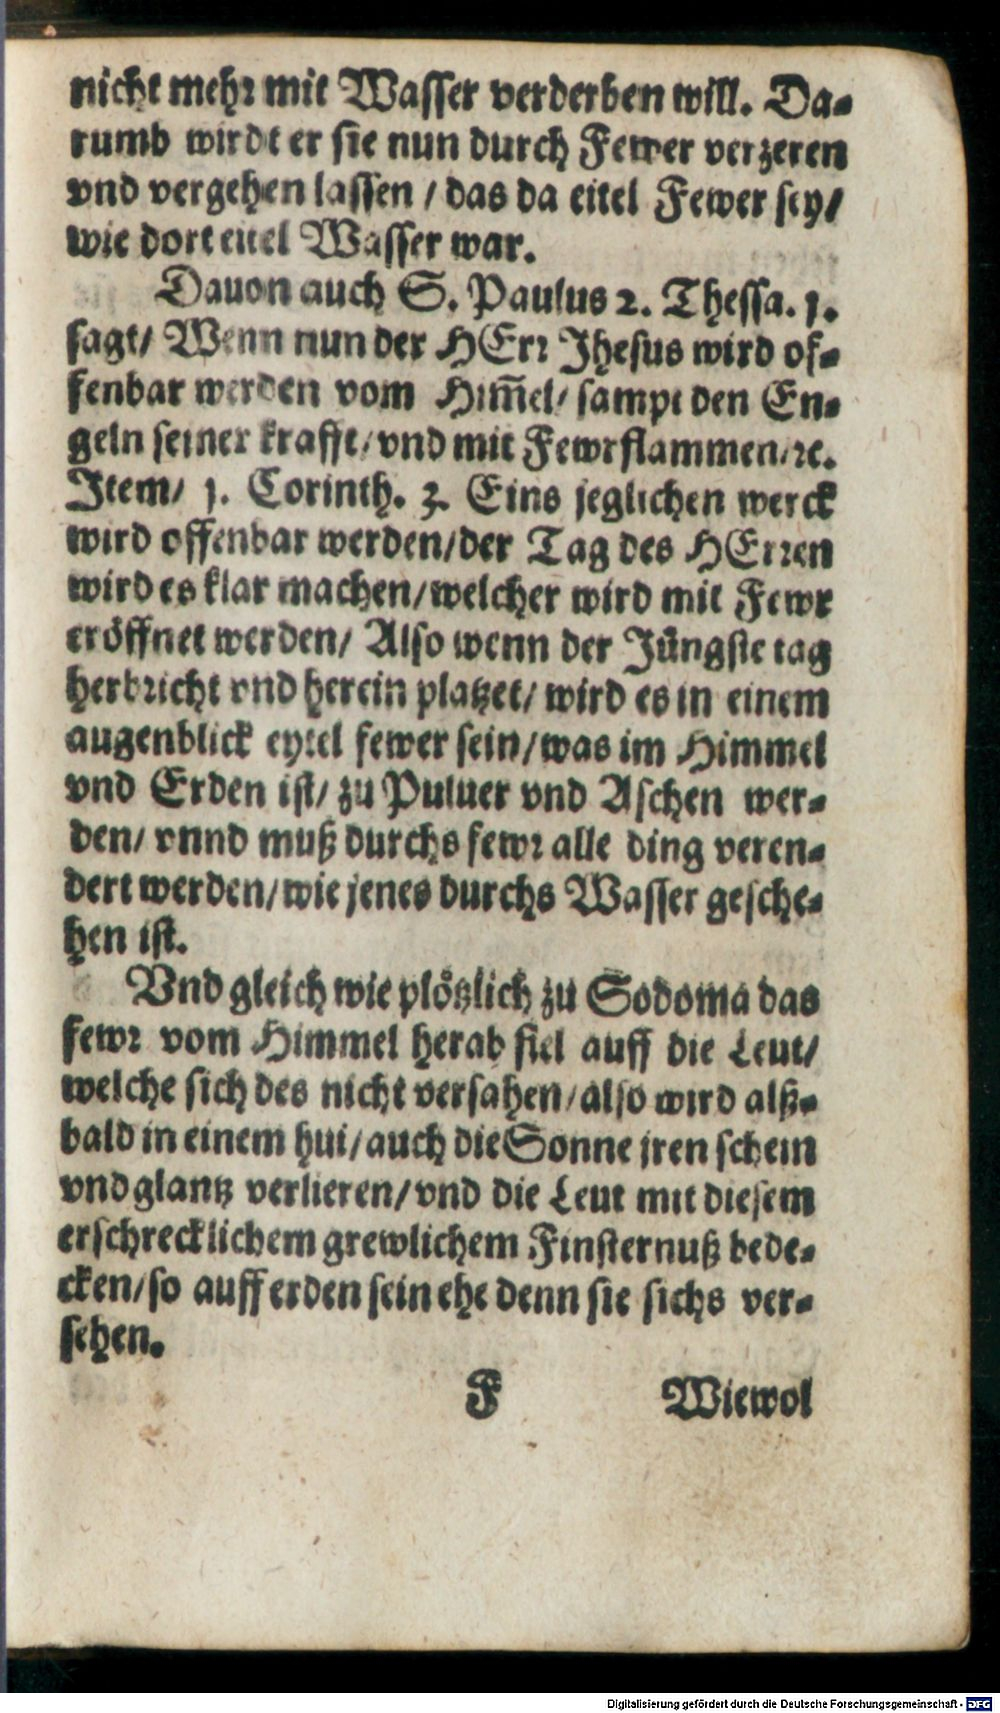 nicht mehr mit Wasser verderben will. Da-
rumb wirdt er sie nun durch Fewer verzeren
vnd vergehen lassen / das da eitel Fewer sey/
wie dort eitel Wasser war.
Dauon auch S. Paulus 2. Thessa. 1.
sagt/ Wenn nun der HErr Jhesus wird of-
fenbar werden vom Him̃el/ sampt den En-
geln seiner krafft/ vnd mit Fewrflammen/ ꝛc.
Item/ 1. Corinth. 3. Eins jeglichen werck
wird offenbar werden/der Tag des HErren
wird es klar machen/welcher wird mit Fewr
eröffnet werden/ Also wenn der Jüngste tag
herbricht vnd herein platzet/ wird es in einem
augenblick eytel fewer sein/was im Himmel
vnd Erden ist/ zu Puluer vnd Aschen wer-
den/ vnnd muß durchs fewr alle ding veren-
dert werden/wie jenes durchs Wasser gesche-
hen ist.
Vnd gleich wie plötzlich zu Sodoma das
fewr vom Himmel herab fiel auff die Leut/
welche sich des nicht versahen/also wird alß-
bald in einem hui/auch die Sonne jren schein
vnd glantz verlieren/vnd die Leut mit diesem
erschrecklichem grewlichem Finsternuß bede-
cken/so auff erden sein ehe denn sie sichs ver-
sehen.
F Wiewol
Digitalisierung gefördert durch die Deutsche Forschungsgemeinschaft - DFG